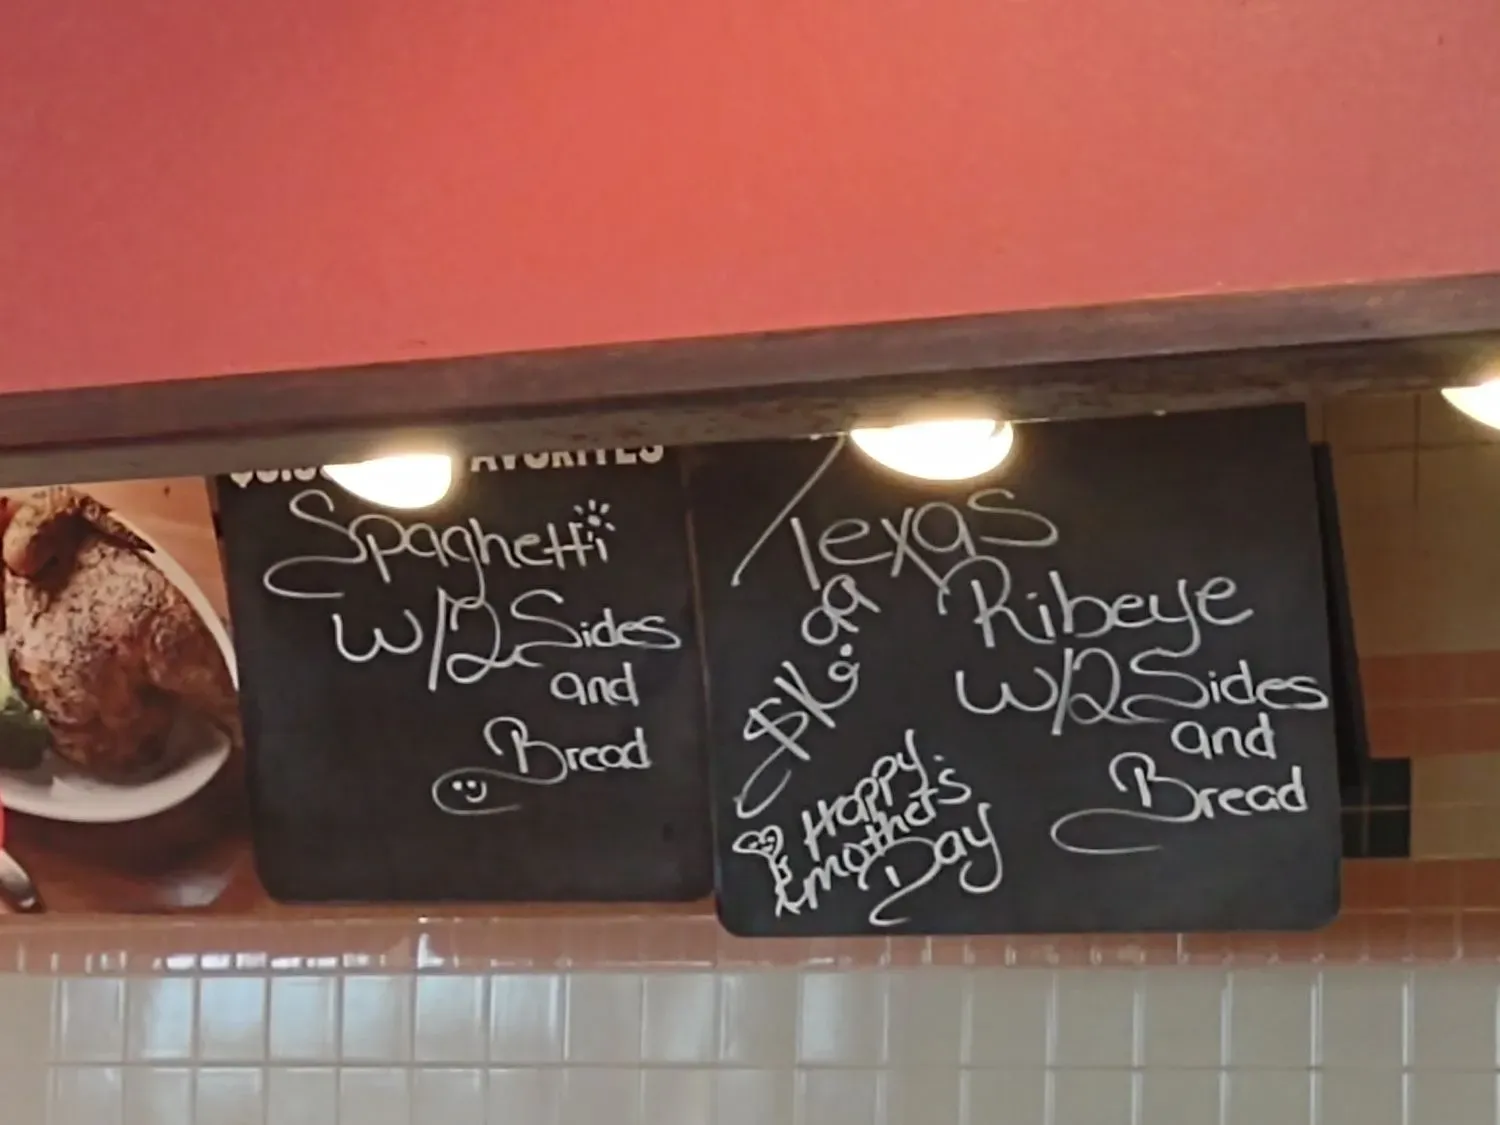 Spaghetti
W/2 Sides
and
Bread
Texas
Ribeye
W/2 Sides
and
Bread
Happy
Mother's
Day